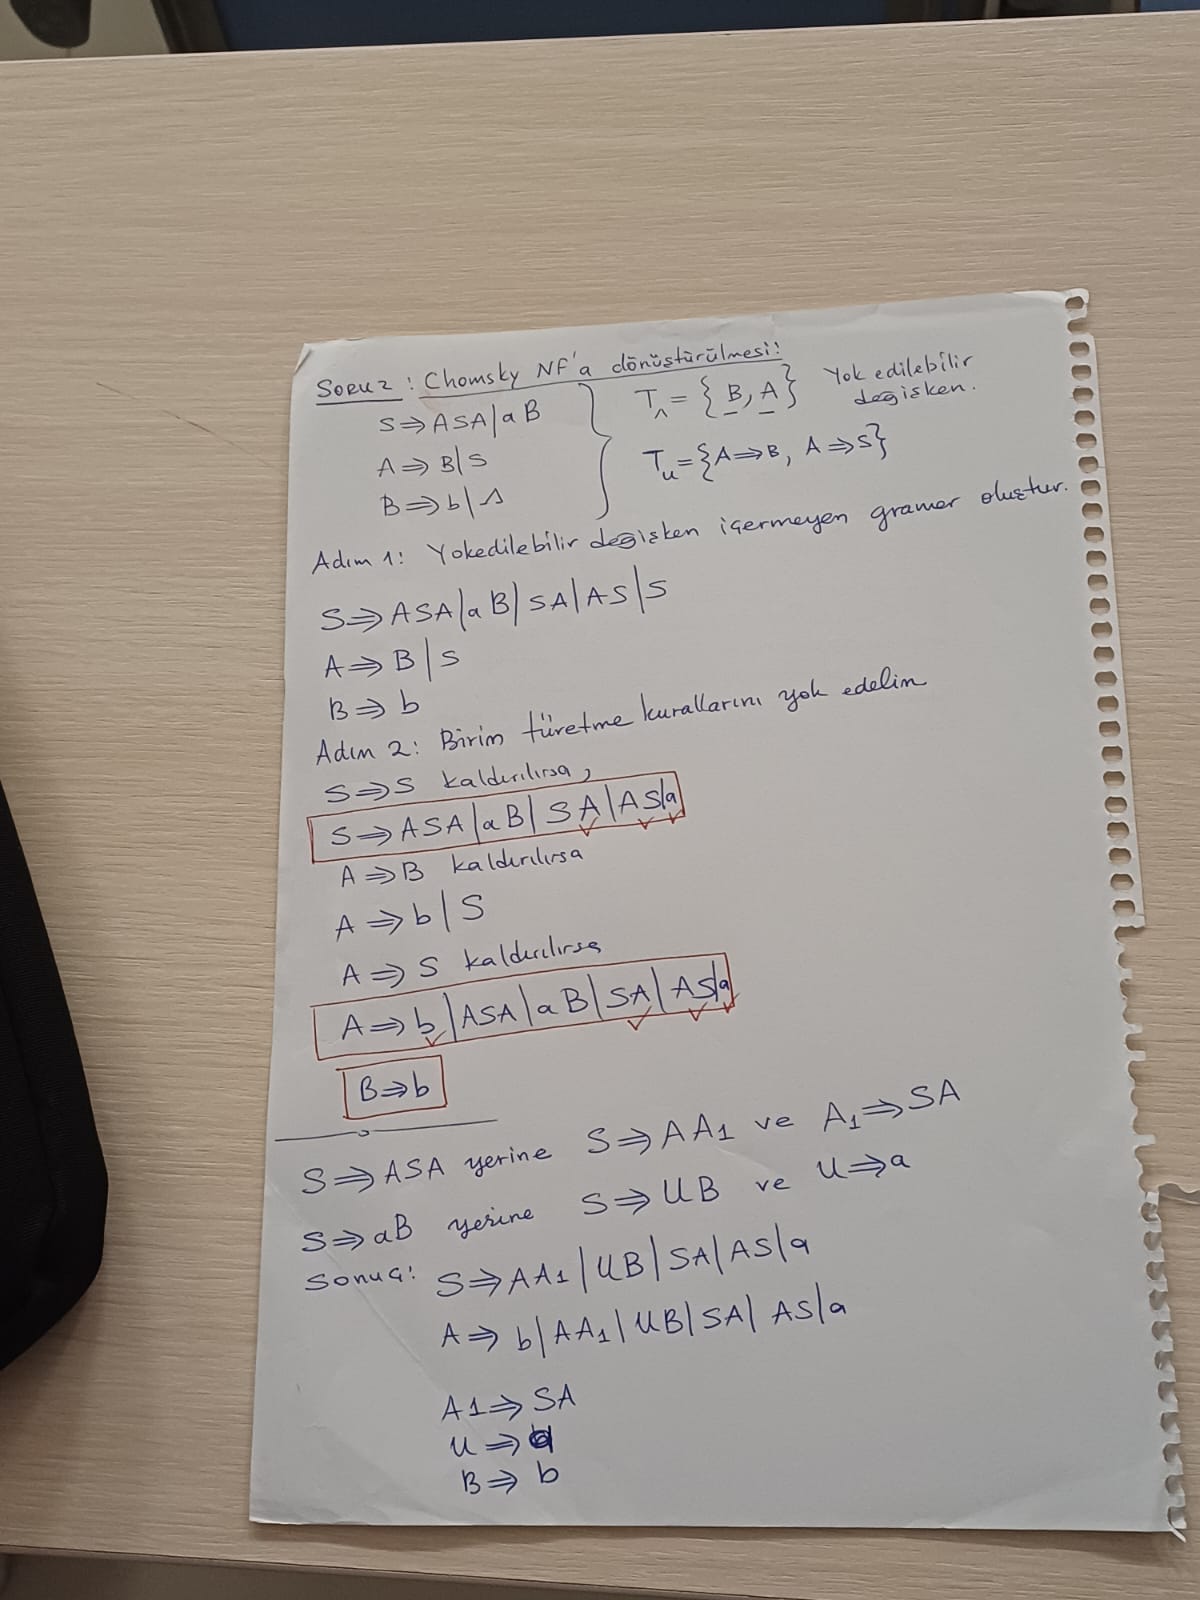 Soru 2: Chomsky NF'a dönüştürülmesi:
S⇒ASA|aB
A⇒B|S
B⇒b|Λ
T_Λ = {B, A} Yok edilebilir değişken.
T_u = {A⇒B, A⇒S}
Adım 1: Yokedilebilir değişken içermeyen gramer oluştur.
S⇒ASA|aB|SA|AS|S
A⇒B|S
B⇒b
Adım 2: Birim türetme kurallarını yok edelim
S⇒S kaldırılırsa,
S⇒ASA|aB|SA|AS|a
A⇒B kaldırılırsa
A⇒b|S
A⇒S kaldırılırsa
A⇒b|ASA|aB|SA|AS|a
B⇒b
S⇒ASA yerine S⇒AA1 ve A1⇒SA
S⇒aB yerine S⇒UB ve U⇒a
Sonuç: S⇒AA1|UB|SA|AS|a
A⇒b|AA1|UB|SA|AS|a
A1⇒SA
U⇒a
B⇒b